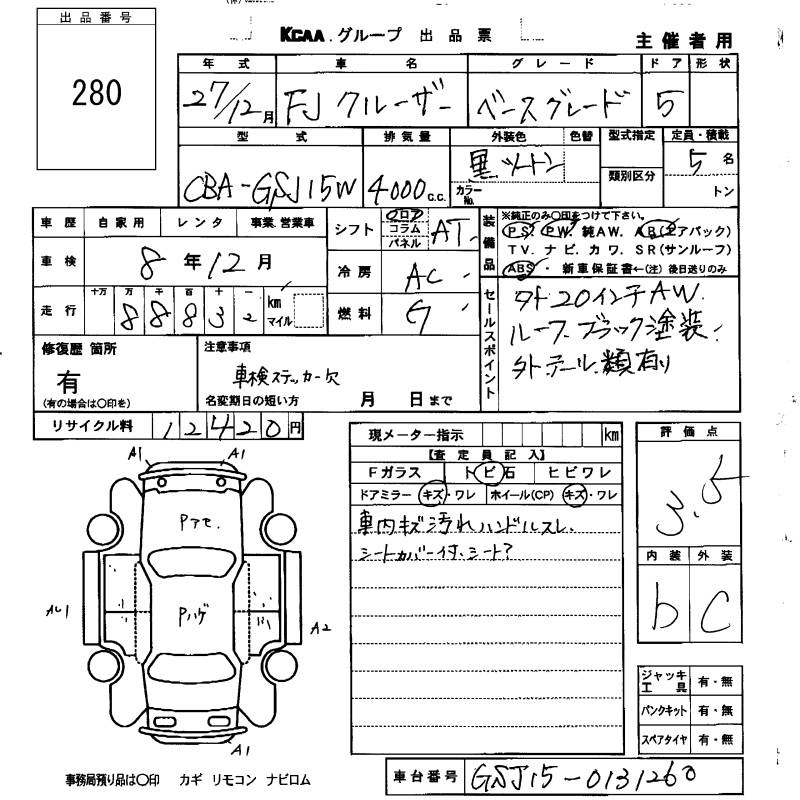 出品番号
280
KCAA.グループ 出品票
主催者用
年式 車名 グレード ドア 形状
27/12月 FJクルーザー ベースグレード 5
型式 排気量 外装色 色替 型式指定 定員・積載
CBA-GSJ15W 4000c.c. 黒ツートン カラーNo. 類別区分 5名 トン
車歴 自家用 レンタ 事業.営業車
シフト フロア コラム パネル AT
装備品 ※純正のみ〇印をつけて下さい。
PS PW 純AW. AB(エアバック)
TV. ナビ. カワ. SR(サンルーフ)
ABS・新車保証書←(注) 後日送りのみ
車検 8年12月
冷房 AC
走行 十万 万 千 百 十 一 km マイル
8 8 8 3 2
燃料 G
セールスポイント
外20インチAW.
ルーフ.ブラック塗装
外テール類有り
修復歴 箇所
有
(有の場合は〇印を)
注意事項
車検ステッカー欠
名変期日の短い方 月 日まで
リサイクル料 12420円
現メーター指示 km
【査定員記入】
Fガラス トビ石 ヒビワレ
ドアミラー キズ・ワレ ホイール(CP) キズ・ワレ
車内キズ汚れハンドルスレ.
シートカバー付.シート?
評価点
3.5
内装 外装
b C
A1 A1
Pアセ.
Pハゲ
A2
A1
ジャッキ工具 有・無
パンクキット 有・無
スペアタイヤ 有・無
事務局預り品は〇印 カギ リモコン ナビロム
車台番号 GSJ15-0131260